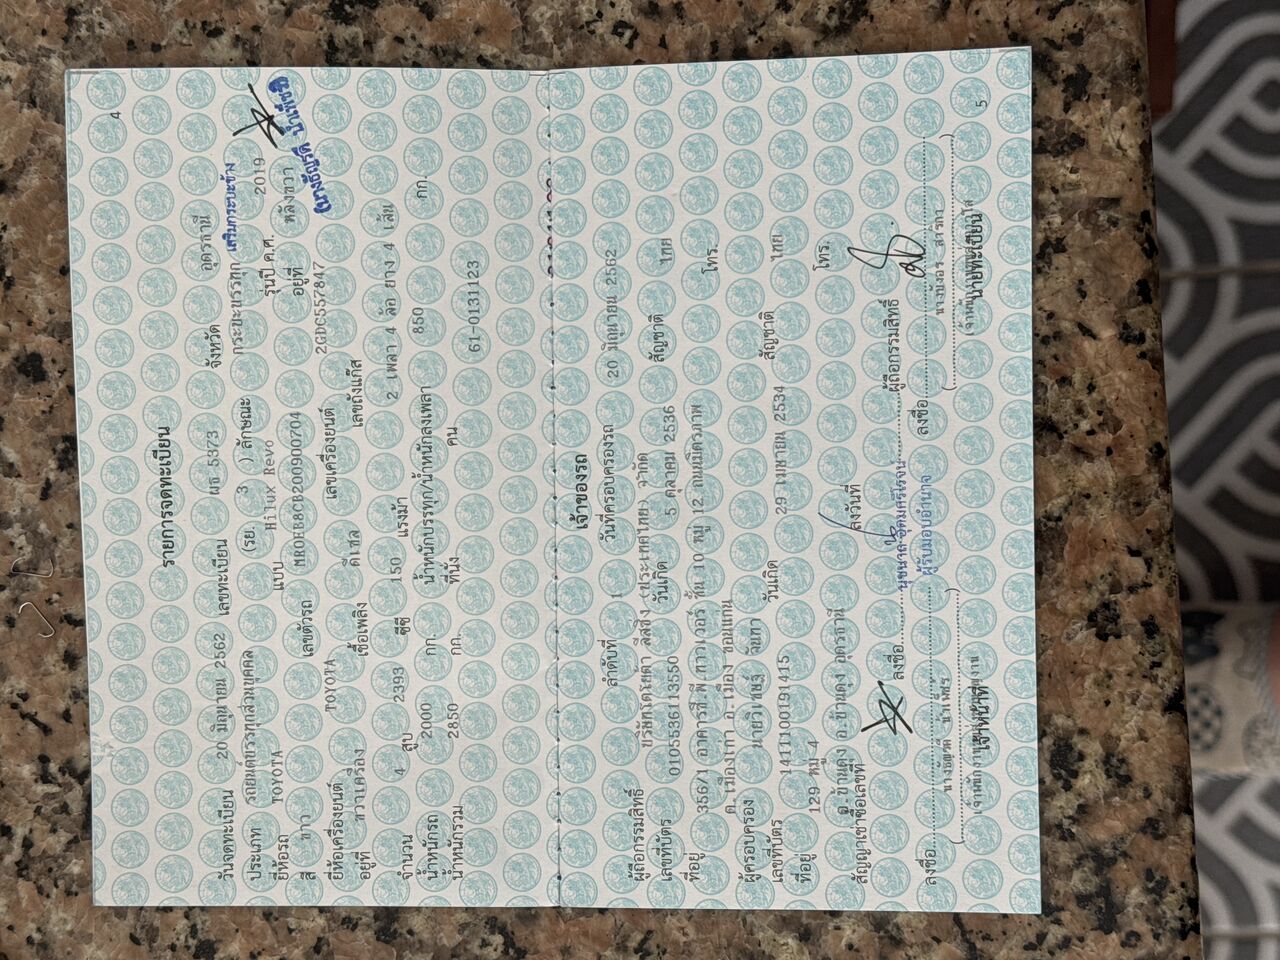 4
รายการจดทะเบียน
วันจดทะเบียน 20 มิถุนายน 2562 เลขทะเบียน ผธ 5373 จังหวัด อุดรธานี
ประเภท รถยนต์บรรทุกส่วนบุคคล (รย. 3 ) ลักษณะ กระบะบรรทุก เสริมกระบะข้าง
ยี่ห้อรถ TOYOTA แบบ Hilux Revo รุ่นปี ค.ศ. 2019
สี ขาว เลขตัวรถ MR0HB8CB200900704 อยู่ที่ หลังขวา
ยี่ห้อเครื่องยนต์ TOYOTA เลขเครื่องยนต์ 2GDC557847
อยู่ที่ ขวาเครื่อง เชื้อเพลิง ดีเซล เลขถังแก๊ส
จำนวน 4 สูบ 2393 ซีซี 150 แรงม้า 2 เพลา 4 ล้อ ยาง 4 เส้น
น้ำหนักรถ 2000 กก. น้ำหนักบรรทุก/น้ำหนักลงเพลา 850 กก.
น้ำหนักรวม 2850 กก. ที่นั่ง คน 61-0131123
เจ้าของรถ
ลำดับที่ 1 วันที่ครอบครองรถ 20 มิถุนายน 2562
ผู้ถือกรรมสิทธิ์ บริษัทโตโยต้า ลีสซิ่ง (ประเทศไทย) จำกัด
เลขที่บัตร 0105536113550 วันเกิด 5 ตุลาคม 2536 สัญชาติ ไทย
ที่อยู่ 356/1 อาคารที.พี.ทาวเวอร์ ชั้น 10 หมู่ 12 ถนนมิตรภาพ
ต.เมืองเก่า อ.เมือง ขอนแก่น โทร.
ผู้ครอบครอง นายวิเชษฐ์ จันทา
เลขที่บัตร 1411100191415 วันเกิด 29 เมษายน 2534 สัญชาติ ไทย
ที่อยู่ 129 หมู่ 4
ต.บ้านดุง อ.บ้านดุง อุดรธานี โทร.
สัญญาเช่าซื้อเลขที่ ลงวันที่
ลงชื่อ ผู้ถือกรรมสิทธิ์
ผู้รับมอบอำนาจ
ลงชื่อ ลงชื่อ
เจ้าหน้าที่ นายทะเบียน
5